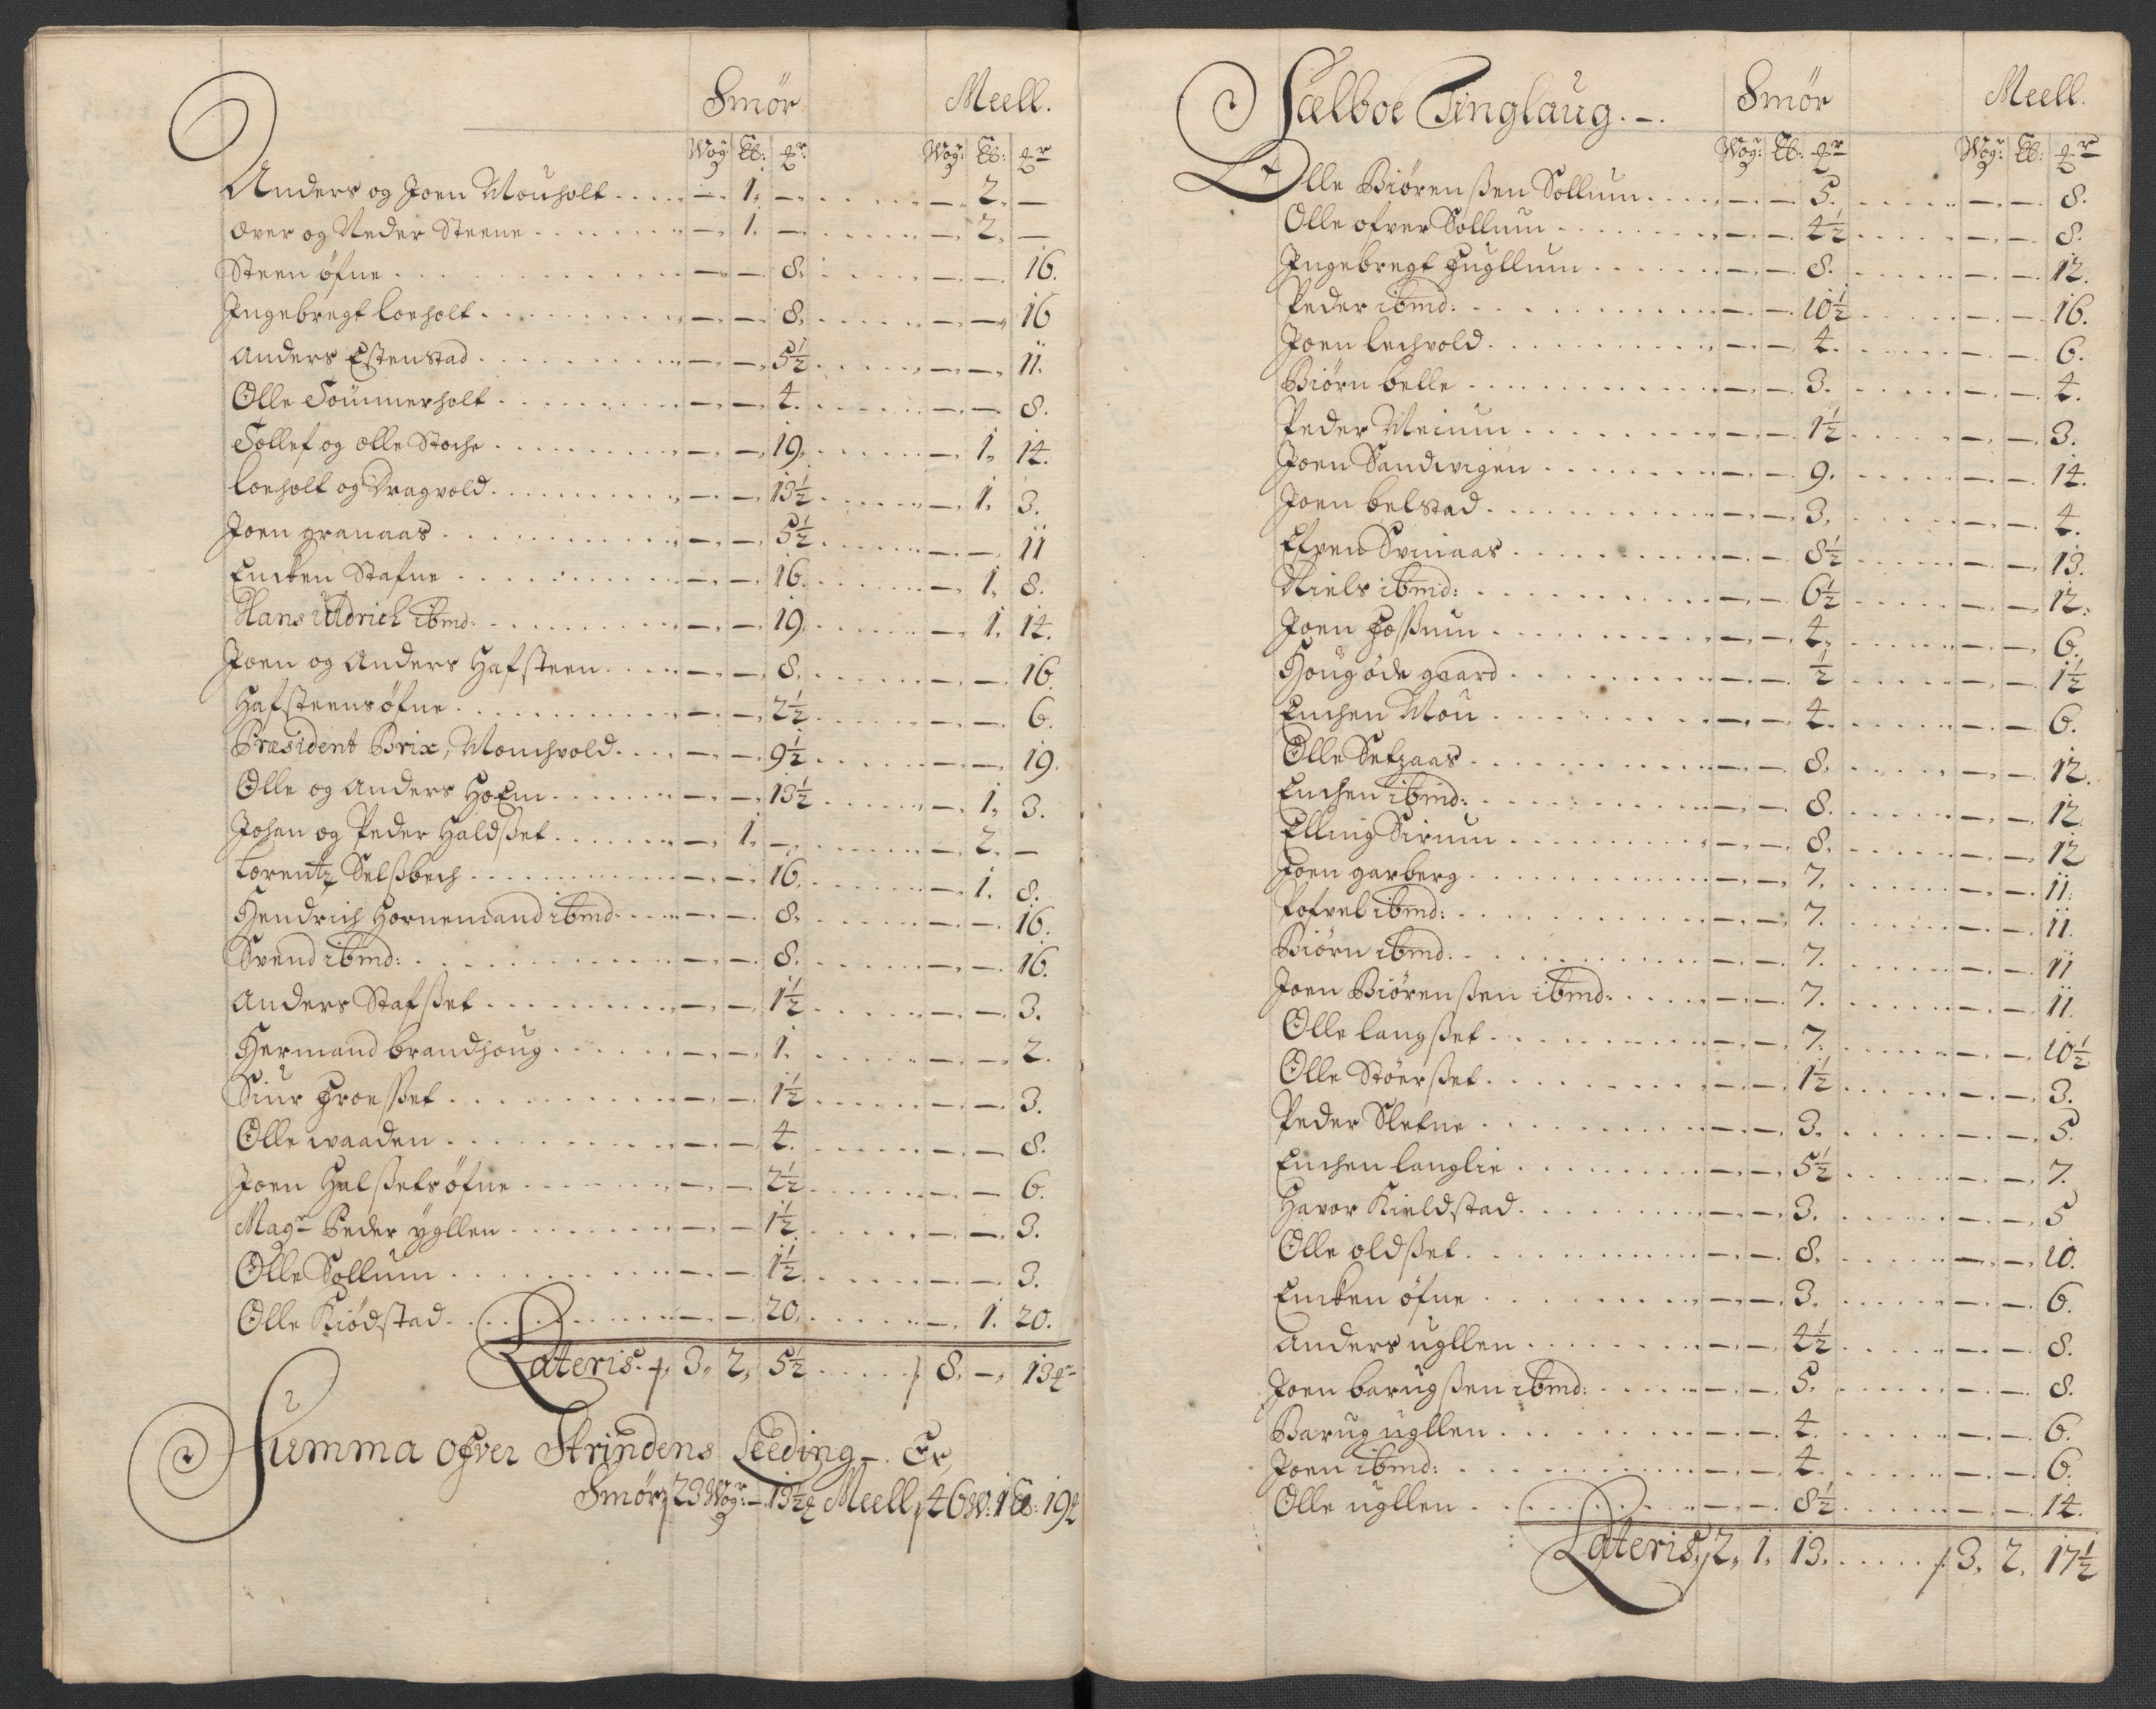 Smör Meell.
Wog: ℔: ꝗr: Wog: ℔: ꝗr
Anders og Joen Mouholt . . . . — . 1. — . . . . — . 2. —
over og Neder Steene . . . . — . 1. — . . . . — . 2. —
Steen öfne . . . . — . — . 8. . . . . — . — . 16.
Ingebregt loeholt . . . . — . — . 8. . . . . — . — . 16
Anders Estenstad . . . . — . — . 5½ . . . . — . — . 11.
Olle Tömmerholt . . . . — . — . 4. . . . . — . — . 8.
Tollef og olle Stoche . . . . — . — . 19. . . . . — . 1. 14.
Loeholt og Dragvold . . . . — . — . 13½ . . . . — . 1. 3.
Joen granaas . . . . — . — . 5½ . . . . — . — . 11
Encken Stafne . . . . — . — . 16. . . . . — . 1. 8.
Hans Uldrich ibmd: . . . . — . — . 19. . . . . — . 1. 14.
Joen og Anders Hafsteen . . . . — . — . 8. . . . . — . — . 16.
Hafsteensöfne . . . . — . — . 2½ . . . . — . — . 6.
Præsident Brix, Mouchvold . . . . — . — . 9½ . . . . — . — . 19.
Olle og Anders HoEm . . . . — . — . 13½ . . . . — . 1. 3.
Johan og Peder Haldsset . . . . — . 1. — . . . . — . 2. —
Lorentz Selsbech . . . . — . — . 16. . . . . — . 1. 8.
Hendrich Hornemand ibmd . . . . — . — . 8. . . . . — . — . 16.
Svend ibmd: . . . . — . — . 8. . . . . — . — . 16.
Anders Stafset . . . . — . — . 1½ . . . . — . — . 3.
Hermand brandhoug . . . . — . — . 1. . . . . — . — . 2.
Siur Froesset . . . . — . — . 1½ . . . . — . — . 3.
Olle waaden . . . . — . — . 4. . . . . — . — . 8.
Joen Halssetsöfne . . . . — . — . 2½ . . . . — . — . 6.
Magr Peder ygllen . . . . — . — . 1½ . . . . — . — . 3.
Olle Sollum . . . . — . — . 1½ . . . . — . — . 3.
Olle Kiödstad . . . . — . — . 20. . . . . — . 1. 20.
Lateris. / 3. 2. 5½ . . . . / 8. —. 13ꝗr
Summa ofver Strindens Leeding — Er,
Smör / 23 Wogr: — 13½ ꝗ Meell / 46 W: 1 ℔: 19 ꝗ
Sælboe Tinglaug. —. Smör Meell.
Wog: ℔: ꝗr Wog: ℔: ꝗr
Olle Biörensen Sollum . . . . — . — . 5. . . . . — . — . 8.
Olle ofver Sollum . . . . — . — . 4½ . . . . — . — . 8.
Ingebregt Fugllum . . . . — . — . 8. . . . . — . — . 12.
Peder ibmd: . . . . — . — . 10½ . . . . — . — . 16.
Joen Lechvold . . . . — . — . 4. . . . . — . — . 6.
Biörn belle . . . . — . — . 3. . . . . — . — . 4.
Peder Meium . . . . — . — . 1½ . . . . — . — . 3.
Joen Sandvigen . . . . — . — . 9. . . . . — . — . 14.
Joen belstad . . . . — . — . 3. . . . . — . — . 4.
Efven Svinaas . . . . — . — . 8½ . . . . — . — . 13.
Niels ibmd: . . . . — . — . 6½ . . . . — . — . 12.
Joen Fossum . . . . — . — . 4. . . . . — . — . 6.
Houg öde gaard . . . . — . — . ½ . . . . — . — . 1½
Enchen Mou . . . . — . — . 4. . . . . — . — . 6.
Olle Setzaas . . . . — . — . 8. . . . . — . — . 12.
Enchen ibmd: . . . . — . — . 8. . . . . — . — . 12.
Elling Sirum . . . . — . — . 8. . . . . — . — . 12
Joen garberg . . . . — . — . 7. . . . . — . — . 11.
Pofvel ibmd: . . . . — . — . 7. . . . . — . — . 11.
Biörn ibmd: . . . . — . — . 7. . . . . — . — . 11
Joen Biörensen ibmd: . . . . — . — . 7. . . . . — . — . 11.
Olle langset . . . . — . — . 7. . . . . — . — . 10½
Olle Stöerset . . . . — . — . 1½ . . . . — . — . 3.
Peder Slefne . . . . — . — . 3. . . . . — . — . 5.
Enchen langlie . . . . — . — . 5½ . . . . — . — . 7.
Havor Kieldstad . . . . — . — . 3. . . . . — . — . 5
Olle oldset . . . . — . — . 8. . . . . — . — . 10.
Encken öfne . . . . — . — . 3. . . . . — . — . 6.
Anders ugllen . . . . — . — . 4½ . . . . — . — . 8.
Joen barugsen ibmd: . . . . — . — . 5. . . . . — . — . 8.
Barug ugllen . . . . — . — . 4. . . . . — . — . 6.
Joen ibmd: . . . . — . — . 4. . . . . — . — . 6.
Olle ugllen . . . . — . — . 8½ . . . . — . — . 14.
Lateris, / 2. 1. 13. . . . . / 3. 2. 17½